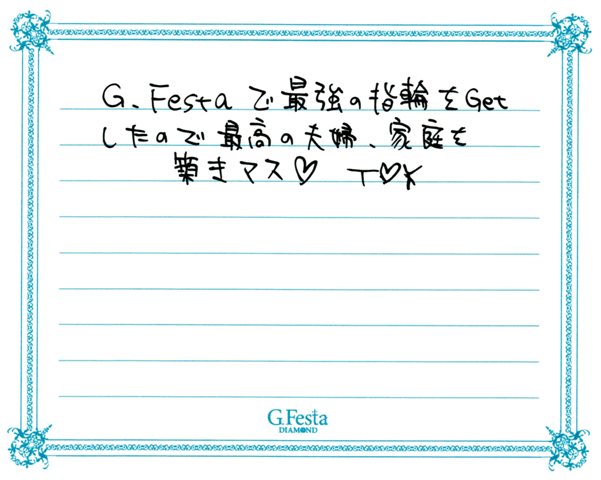 G.Festaで最強の指輪をGet
したので最高の夫婦、家庭を
築きマス♡ T♡K
G.Festa
DIAMOND